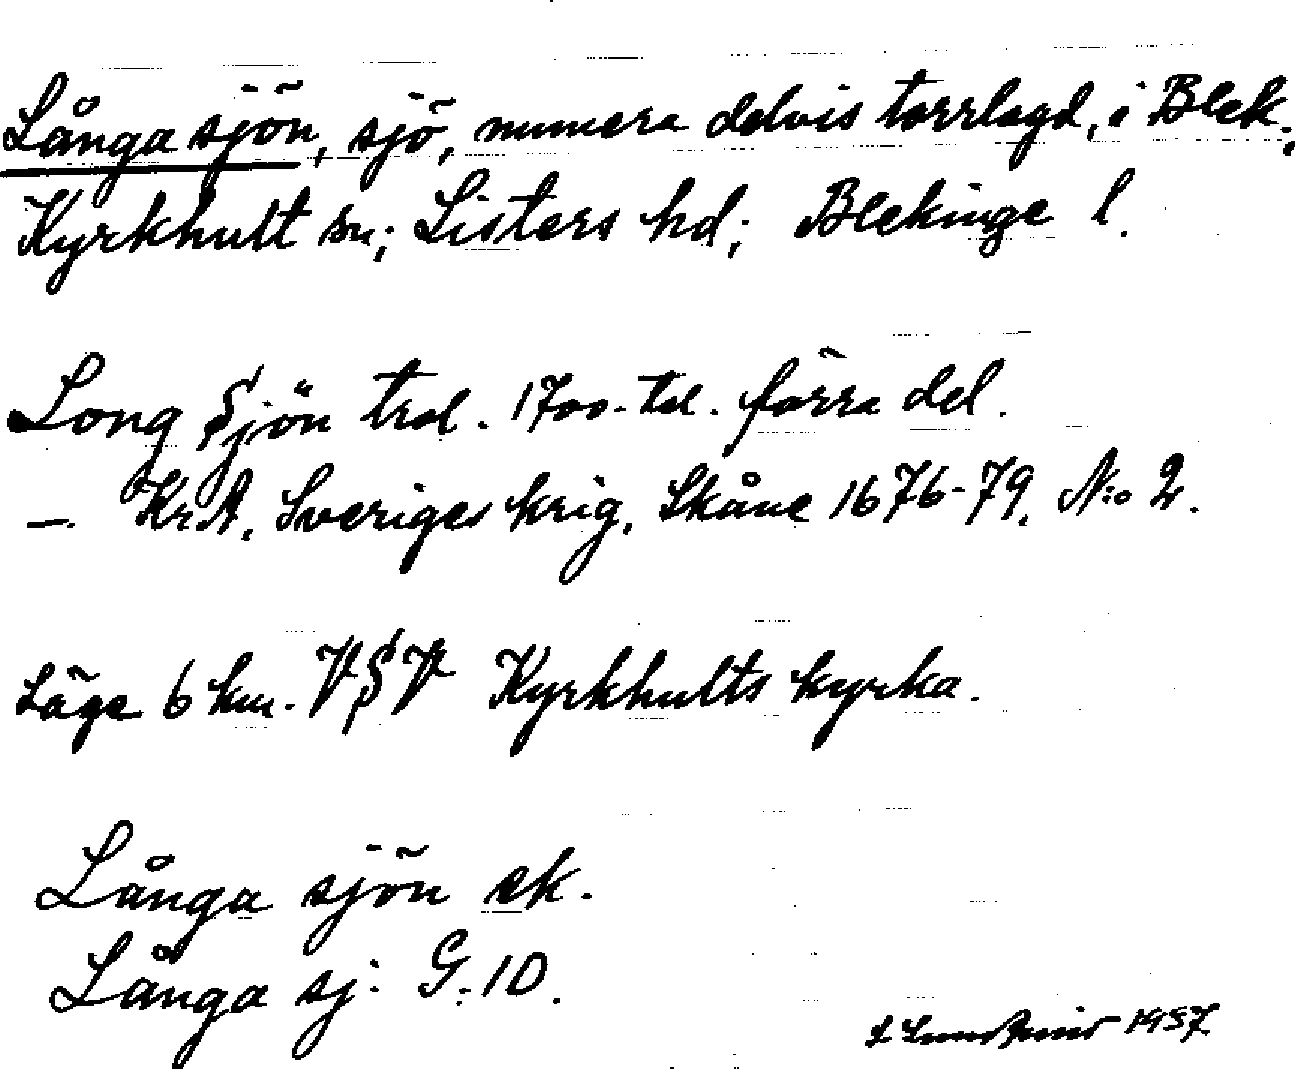 Långa sjön, sjö, numera delvis torrlagd, i Blek.,
Kyrkhult sn; Listers hd; Blekinge l.
Long Sjön trol. 1700-tal. förra del.
— KrA, Sveriges krig, Skåne 1676-79. N:o 2.
Läge 6 km. VSV Kyrkhults kyrka.
Långa sjön ek.
Långa sj: G:10.
1957